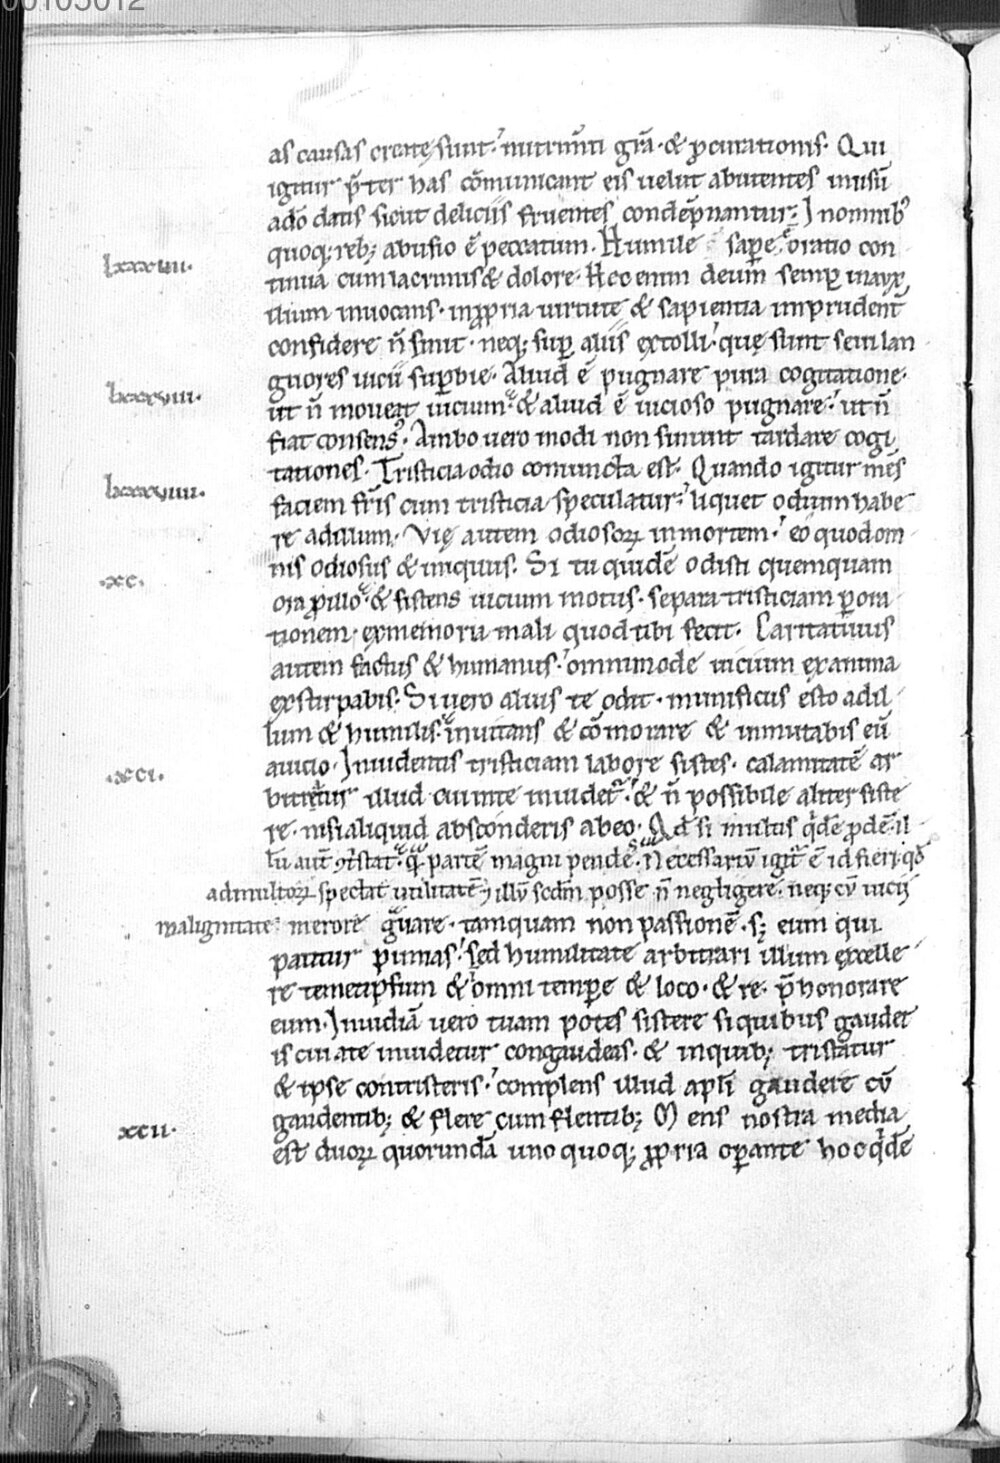 00105012
as causas create sunt. nutrim̄ti gr̄a. & ꝓcurationis. Qui
igitur p̄ter has cōmunicant eis uelut abutentes inusū
a dō datis sicut deliciis fruentes condēpnantur. In omnib᷒
quoq; reb; abusio ē peccatum. Humile sapere oratio con
lxxxvii.
tinua cum lacrimis & dolore. Hec enim deum semꝑ
ilium inuocans. in ꝓpria uirtute & sapientia imprudent̄
confidere n̄ sinit. neq; suꝑ aliis extolli. quę sunt seui lan
guores uicii suꝑbie. Aliud ē pugnare pura cogitatione.
lxxxviii.
ut n̄ moueat uicium. & aliud ē uicioso pugnare. ut n̄
fiat consens᷒. Ambo uero modi non sinunt tardare cogi
tationes. Tristicia odio coniuncta est. Quando igitur mēs
lxxxviiii.
faciem fr̄is cum tristicia speculatur. liquet odium habe
re ad illum. Vię autem odiosoꝝ in mortem. eo quod om
nis odiosus & iniquus. Si tu quidē odisti quemquam
.xc.
ora ꝓ illo. & sistens uicium motus. separa tristiciam ꝑ ora
tionem. ex memoria mali quod tibi fecit. Caritatiuus
autem factus & humanus. omnimode uicium ex anima
exstirpabis. Si uero alius te odit. munificus esto ad il
lum & humilis. inuitans & cōmorare & inmutabis eū
a uicio. Inuidentis tristiciam labore sistes. calamitatē ar
.xci.
bitratur illud cui in te inuidet. & n̄ possibile aliter siste
re. nisi aliquid absconderis ab eo. Qd̄ si multis qͥdē ꝓdē. il
lū aut̄ ꝯtristat. qͣ partē magni pendē. Necessariū igit ē id fieri. qd̄
ad multoꝝ spectat utilitatē. illū scdm posse n̄ negligere. neq; cū uicii
malignitate merore gͣuare. tamquam non passionē. s; eum qui
patitur ꝑimas. sed humilitate arbitrari illum excelle
re temetipsum & omni tempore & loco. & re. p̄honorare
eum. Inuidiā uero tuam potes sistere si quibus gaudet
is cui a te inuidetur congaudeas. & in quib; tristatur
& ipse contristeris. complens illud apl̄i gaudere cū
gaudentib; & flere cum flentib; Mens nostra media
xcii.
est duoꝝ quorundā uno quoq; ꝓpria oꝑante hoc qͥdē